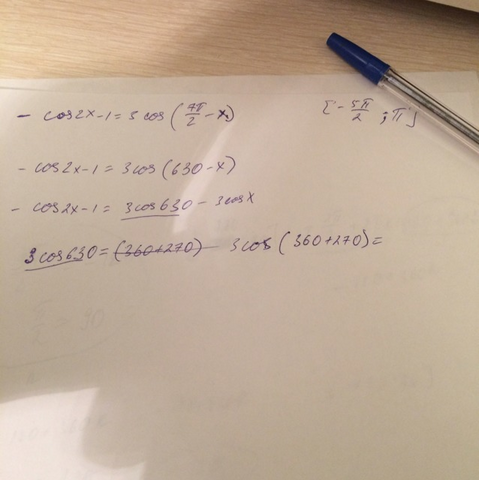 - cos2x-1=3cos(7π/2-x) [-5π/2;π]
- cos2x-1=3cos(630-x)
- cos2x-1=3cos630-3cosx
3cos630=(360+270) 3cos(360+270)=
π/2=30